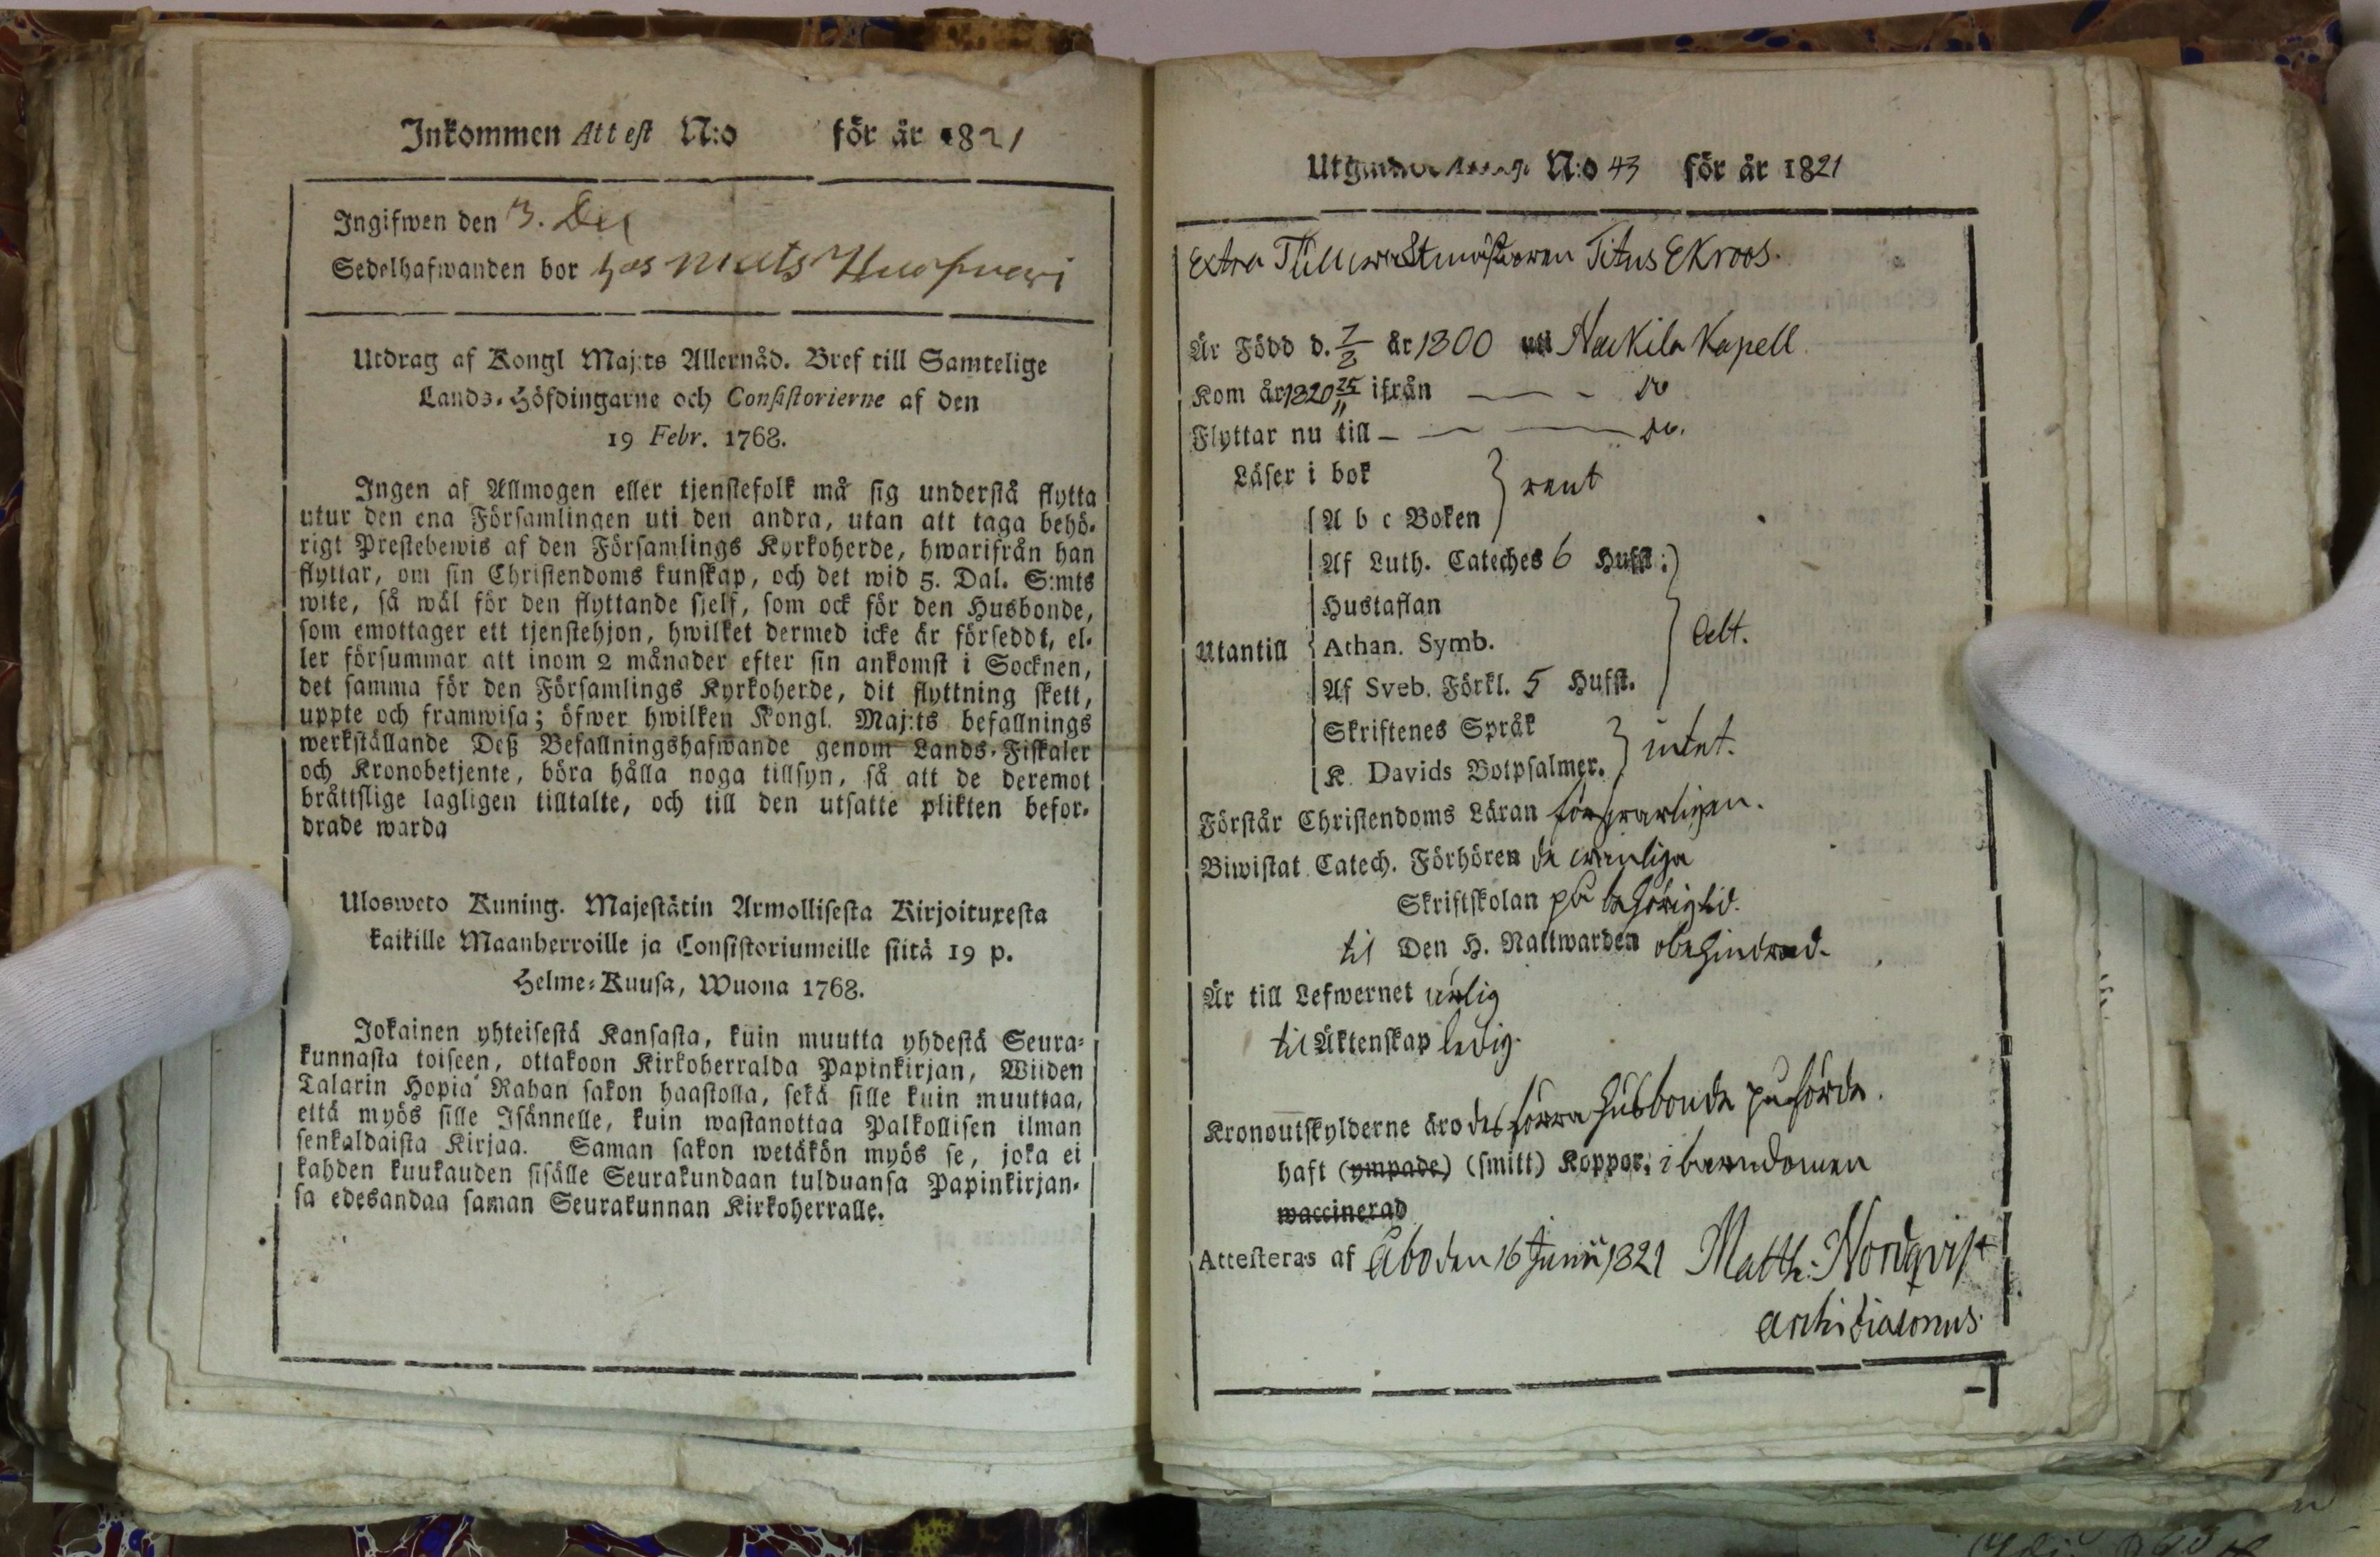 Inkommen Attest N:o för år 1821
Ingifwen den 13. Dec
Sedelhafwanden bor hos Mats
Utdrag af Kongl Maj:ts Allernåd. Bref till Samtelige
Lands-Höfdingarne och Consistorierne af den
19 Febr. 1768.
Ingen af Allmogen eller tjenstefolk må sig understå flytta
utur den ena Församlingen uti den andra, utan att taga behö-
rigt Prestebewis af den Församlings Kyrkoherde, hwarifrån han
flyttar, om sin Christendoms kunskap, och det wid 5. Dal. S:mts
wite, så wäl för den flyttande sjelf, som ock för den Husbonde,
som emottager ett tjenstehjon, hwilket dermed icke är förseddt, el-
ler försummar att inom 2 månader efter sin ankomst i Socknen,
det samma för den Församlings Kyrkoherde, dit flyttning skett,
uppte och framwisa; öfwer hwilken Kongl. Maj:ts befallnings
werkställande Deß Befallningshafwande genom Lands-Fiskaler
och Kronobetjente, böra hålla noga tillsyn, så att de deremot
bråttslige lagligen tilltalte, och till den utsatte plikten befor-
drade warda
Ulosweto Kuning. Majestätin Armollisesta Kirjoituxesta
kaikille Maanherroille ja Consistoriumeille siitä 19 p.
Helme-Kuusa, Wuona 1768.
Jokainen yhteisestä Kansasta, kuin muutta yhdestä Seura-
kunnasta toiseen, ottakoon Kirkoherralda Papinkirjan, Wiiden
Talarin Hopia Rahan sakon haastolla, sekä sille kuin muuttaa,
että myös sille Isännelle, kuin wastanottaa Palkollisen ilman
senkaldaista Kirjaa. Saman sakon wetäkön myös se, joka ei
kahden kuukauden sisälle Seurakundaan tulduansa Papinkirjan-
sa edesandaa saman Seurakunnan Kirkoherralle.
N:o 43 för år 1821
Extra Titus Ekroos.
Är Född d. 7/8 år 1800 uti Nackila Kapell.
Kom år 1820 25/11 ifrån — — - do
Flyttar nu till — — — do.
Läser i bok
A b c Boken } rent
Af Luth. Cateches 6 Hufst:
Hustaflan
Utantill Athan. Symb. } Allt.
Af Sveb. Förkl. 5 Hufst.
Skriftenes Språk
K. Davids Botpsalmer. } intet.
Förstår Christendoms Läran försvarligen.
Biwistat Catech. Förhören de wanliga
Skriftskolan på behörig tid.
til Den H. Nattwarden obehindrad.
Är till Lefwernet ärlig
til Äktenskap ledig.
Kronoutskylderne äro des förra husbonde påförde.
haft (ympade) (smitt) Koppor, i barndomen
waccinerad
Attesteras af Åbo den 16 Junii 1821 Matth: Nordqvist
Archidiaconus.